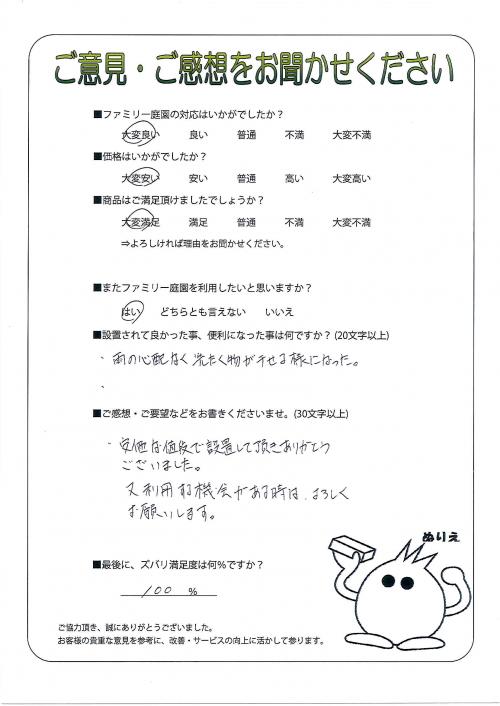 ご意見・ご感想をお聞かせください
■ファミリー庭園の対応はいかがでしたか？
大変良い 良い 普通 不満 大変不満
■価格はいかがでしたか？
大変安い 安い 普通 高い 大変高い
■商品はご満足頂けましたでしょうか？
大変満足 満足 普通 不満 大変不満
⇒よろしければ理由をお聞かせください。
■またファミリー庭園を利用したいと思いますか？
はい どちらとも言えない いいえ
■設置されて良かった事、便利になった事は何ですか？(20文字以上)
・雨の心配なく洗たく物が干せる様になった。
・
■ご感想・ご要望などをお書きくださいませ。(30文字以上)
・安価な値段で設置して頂きありがとう
ございました。
又利用する機会がある時は、よろしく
お願いします。
ぬりえ
■最後に、ズバリ満足度は何％ですか？
100 %
ご協力頂き、誠にありがとうございました。
お客様の貴重な意見を参考に、改善・サービスの向上に活かして参ります。